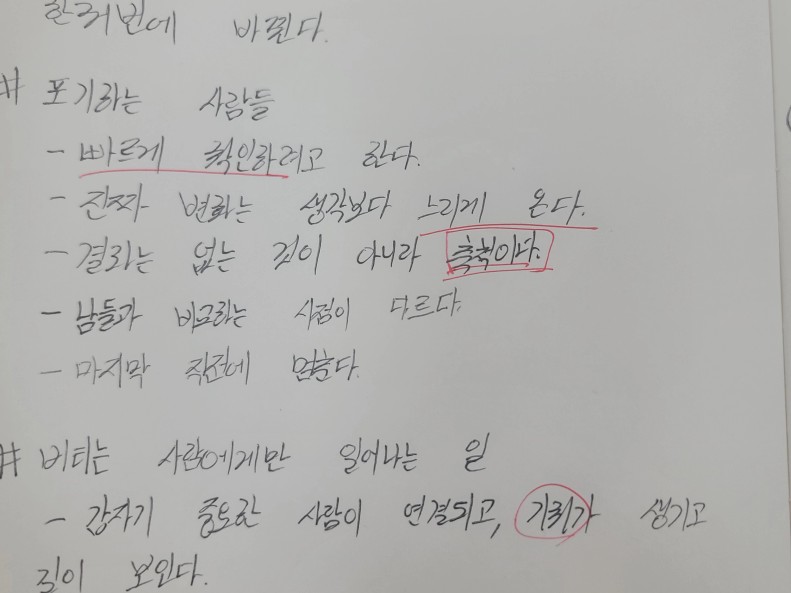 한꺼번에 바뀐다.
# 포기하는 사람들
- 빠르게 확인하려고 한다.
- 진짜 변화는 생각보다 느리게 온다.
- 결과는 없는 것이 아니라 축척이다.
- 남들과 비교하는 시점이 다르다.
- 마지막 직전에 멈춘다.
# 버티는 사람에게만 일어나는 일
- 갑자기 중요한 사람이 연결되고, 기회가 생기고
길이 보인다.